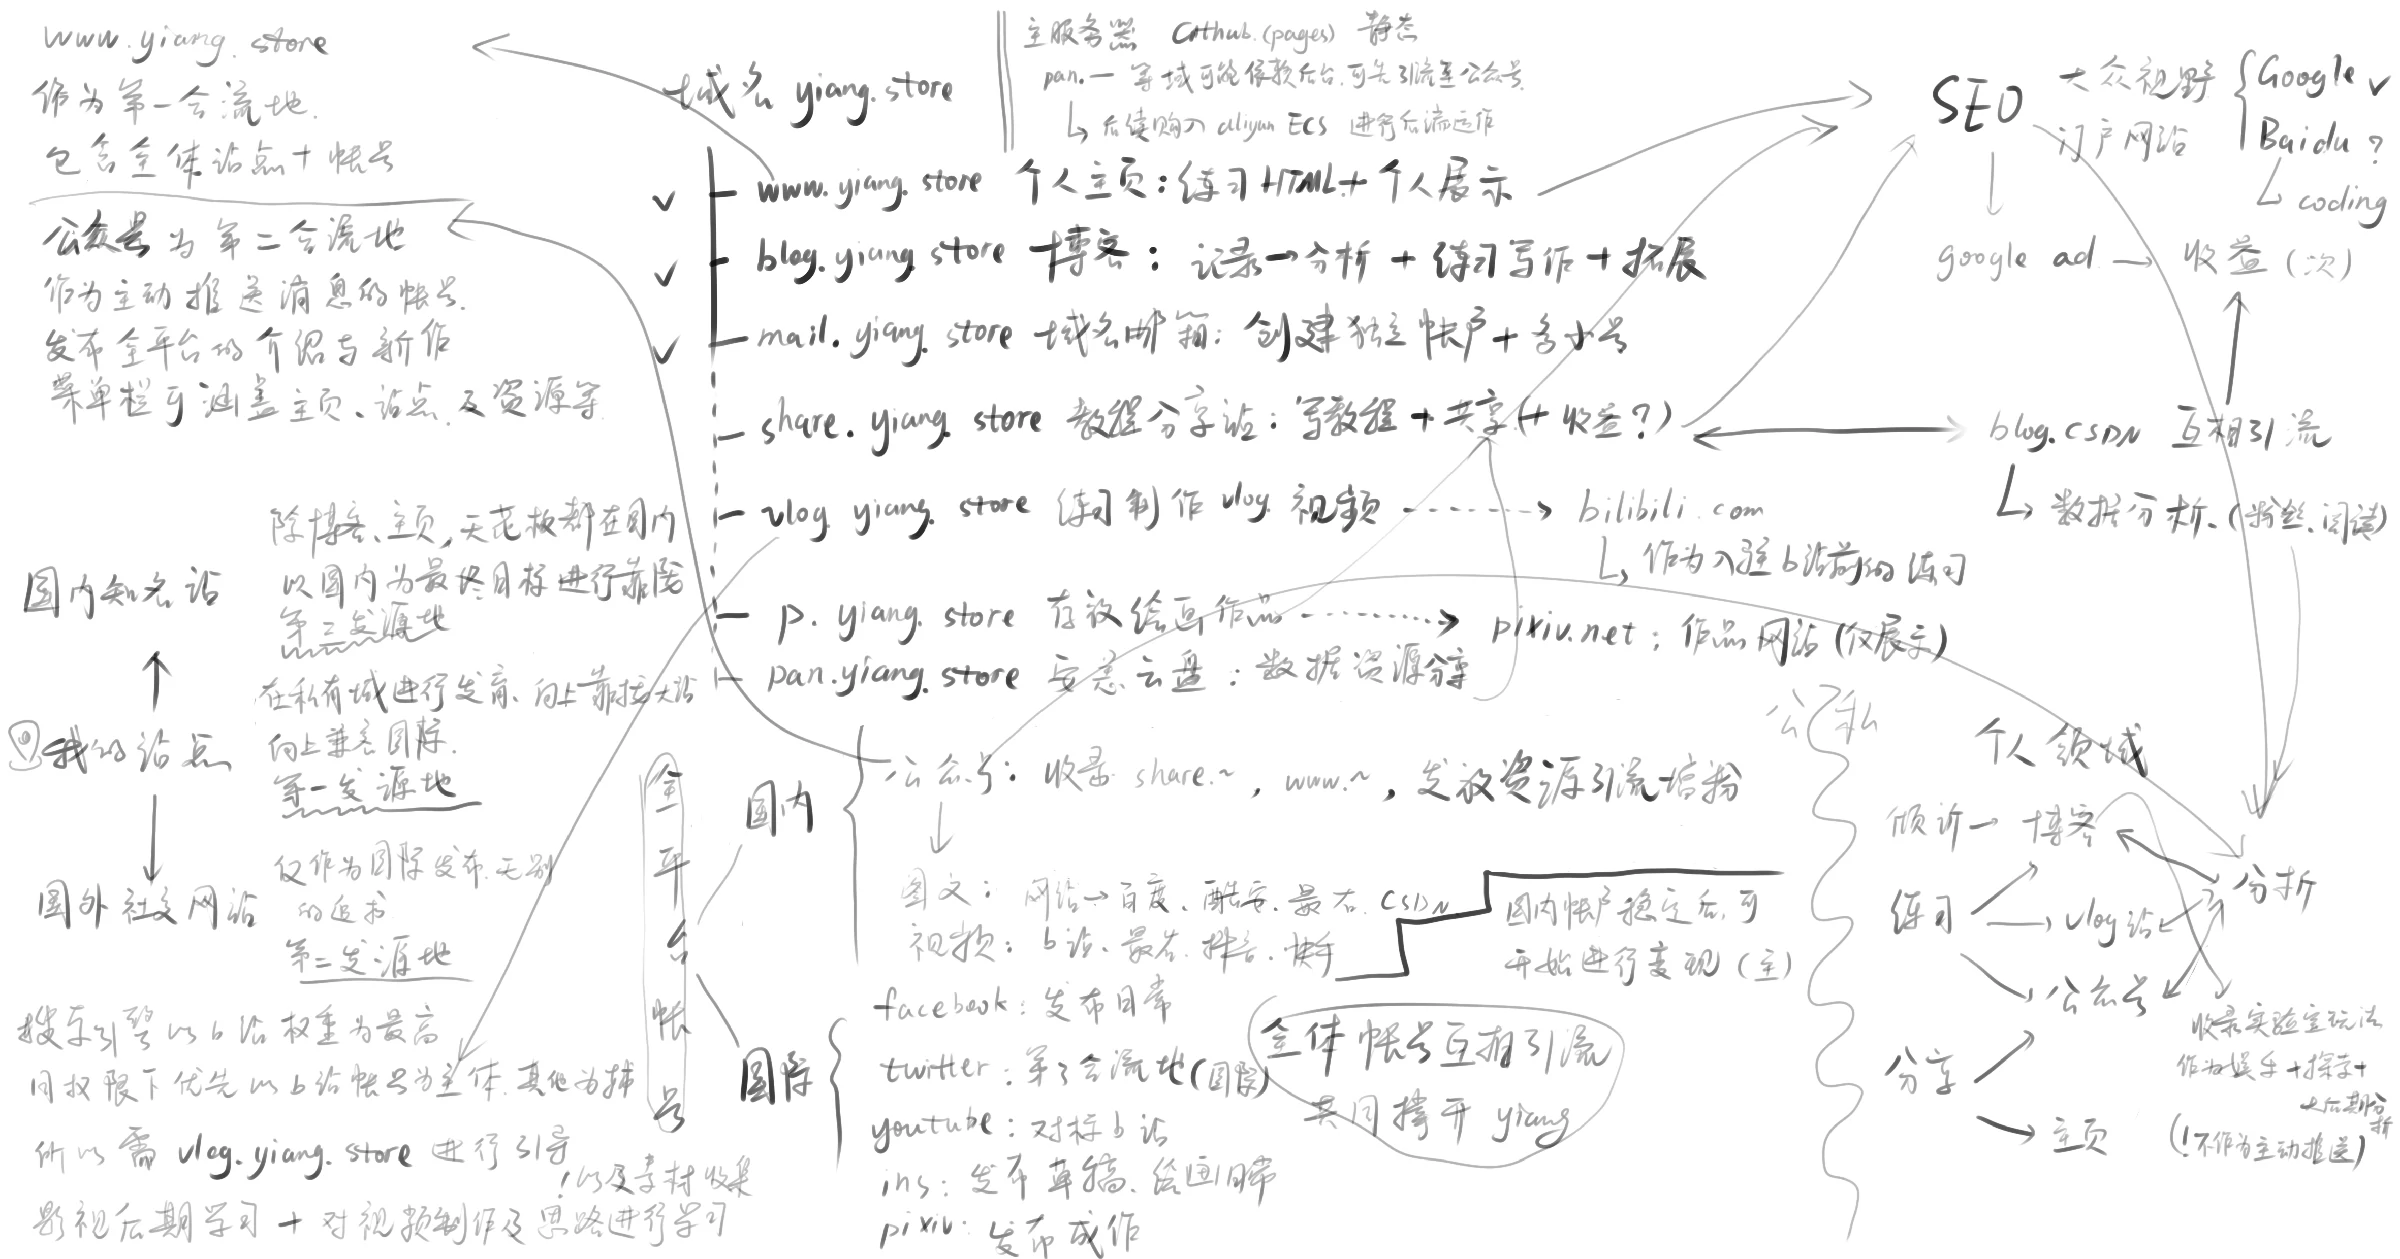 www.yiang.store
作为第一合流地.
包含全体站点+帐号
公众号为第二合流地
作为主动推送消息的帐号.
发布全平台的介绍与新作
菜单栏可涵盖主页、站点及资源等
域名 yiang.store
主服务器 Github(pages) 静态
pan.一等域可能依赖后台.可先引流至公众号.
后续购入aliyun ECS 进行后端运作
www.yiang.store 个人主页:练习HTML+个人展示
blog.yiang.store 博客:记录→分析+练习写作+拓展
mail.yiang.store 域名邮箱:创建独立帐户+多小号
share.yiang.store 教程分享站:写教程+共享(+收益?)
vlog.yiang.store 练习制作vlog视频
bilibili.com
作为入驻b站前的练习
p.yiang.store 存放绘画作品
pixiv.net:作品网站(仅展示)
pan.yiang.store 安恙云盘:数据资源分享
SEO
大众视野
门户网站
Google ✓
Baidu ?
coding
google ad → 收益(次)
blog.CSDN 互相引流
数据分析.(粉丝.阅读)
国内知名站
除博客、主页,天花板都在国内
以国内为最终目标进行靠拢
第三发源地
我的站点
在私有域进行发育、向上靠拉大站
向上兼容国际.
第一发源地
国外社交网站
仅作为国际发布.无别
的追求
第二发源地
搜索引擎以b站权重为最高
同权限下优先以b站帐号为主体.其他为辅
所以需 vlog.yiang.store 进行引导
!以及素材收集
影视后期学习+对视频制作及思路进行学习
全平台帐号
国内
公众号:收录 share.~, www.~, 发放资源引流增粉
图文:网站→百度、酷安、最右.CSDN
视频:b站、最右.抖音.快手
国内帐户稳定后.可
开始进行变现(主)
国际
facebook:发布日常
twitter:第3合流地(国际)
youtube:对标b站
ins:发布草稿、绘画日常
pixiv:发布成作
全体帐号互相引流
共同撑开 yiang
公 私
个人领域
倾诉→博客
练习
vlog站
公众号
分析
分享
主页
收录实验室玩法
作为娱乐+探索+
+后期分析
(!不作为主动推送)